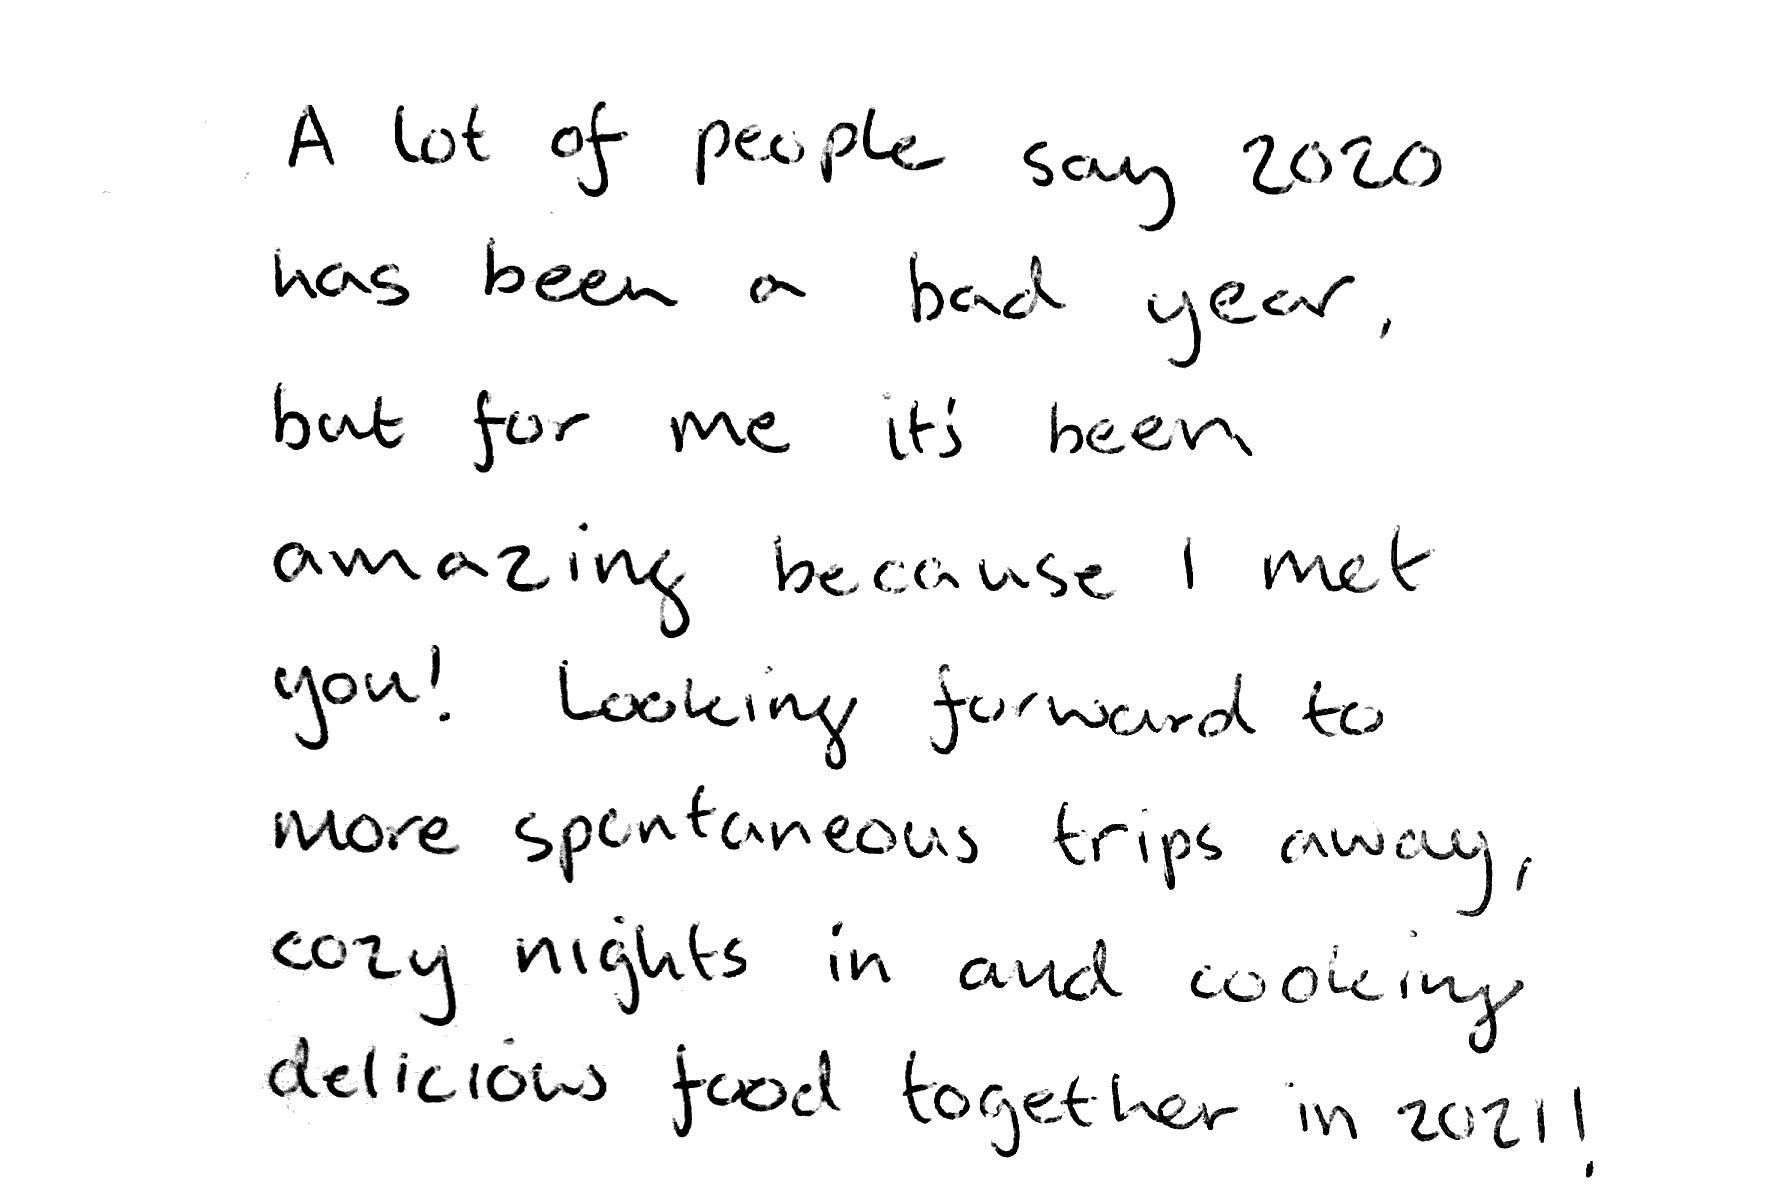 A lot of people say 2020
has been a bad year,
but for me it's been
amazing because I met
you! Looking forward to
more spontaneous trips away,
cozy nights in and cooking
delicious food together in 2021!